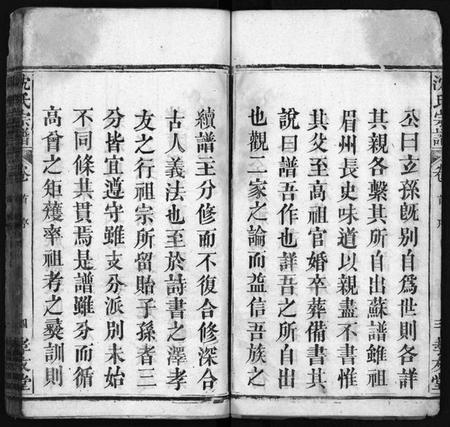 沈氏宗譜
公曰玄孫既別自為世則各詳
其親各繫其所自出蘇譜雖祖
眉州長史味道以親盡不書惟
其父至高祖官婚卒葬備書其
說曰譜吾作也詳吾之所自出
也觀二家之論而益信吾族之
續譜主分修而不復合修深合
古人義法也至於詩書之澤孝
友之行祖宗所留貽子孫者三
分皆宜遵守雖支分派別未始
不同條其貫焉是譜雖分而循
高曾之矩矱率祖考之彝訓則
沈氏宗譜 卷首